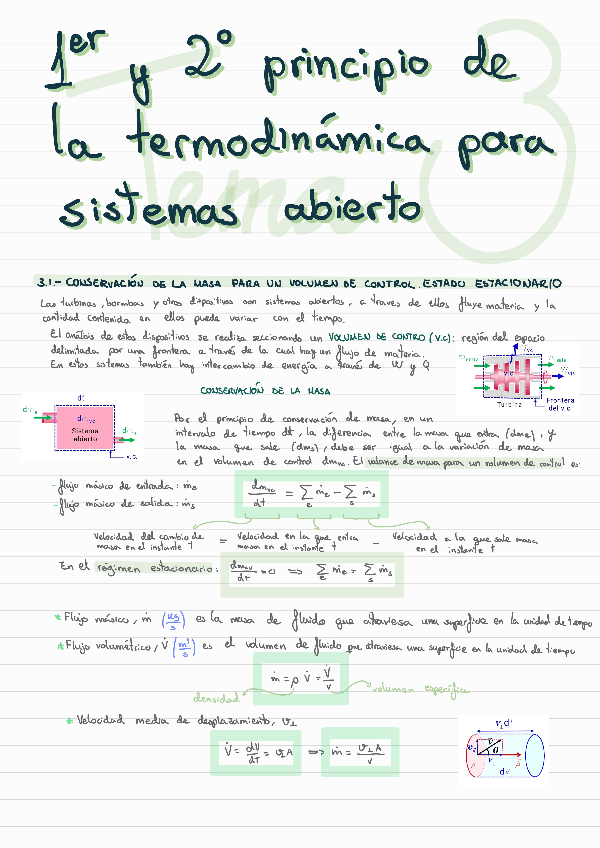 Tema 3
1er y 2º principio de
la termodinámica para
sistemas abierto
3.1.- CONSERVACIÓN DE LA MASA PARA UN VOLUMEN DE CONTROL. ESTADO ESTACIONARIO
Las turbinas, bombas y otros dispositivos son sistemas abiertos, a traves de ellos fluye materia y la
cantidad contenida en ellos puede variar con el tiempo.
El análisis de estos dispositivos se realiza seccionando un VOLUMEN DE CONTRO (V.C): región del espacio
delimitada por una frontera a través de la cual hay un flujo de materia.
En estos sistemas también hay intercambio de energía a través de W y Q
Turbina
Frontera
del v.c.
CONSERVACIÓN DE LA MASA
dt
Sistema
abierto
v.c.
Por el principio de conservación de masa, en un
intervalo de tiempo dt, la diferencia entre la masa que entra (dme), y
la masa que sale (dms), debe ser igual a la variación de masa
en el volumen de control dmvc. El valance de masa para un volumen de control es:
- flujo másico de entrada: ṁe
- flujo másico de salida: ṁs
dmvc/dt = Σe ṁe − Σs ṁs
Velocidad del cambio de masa en el instante t = Velocidad en la que entra masa en el instante t − Velocidad a la que sale masa en el instante t
En el régimen estacionario: dmvc/dt = 0 ⟹ Σe ṁe = Σs ṁs
* Flujo másico, ṁ (kg/s) es la masa de fluido que atraviesa una superficie en la unidad de tiempo
* Flujo volumétrico, V̇ (m³/s) es el volumen de fluido que atraviesa una superficie en la unidad de tiempo
ṁ = ρ V̇ = V̇/v
densidad
volumen específico
* Velocidad media de desplazamiento, v⊥
V̇ = dV/dT = v⊥A ⟹ ṁ = v⊥A/v
v⊥dt
dV